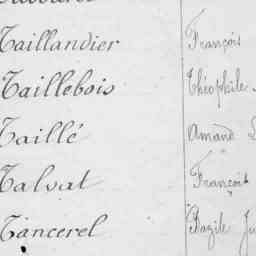 Taillandier François
Taillebois Théophile
Taillé Amand
Talvat François
Tancerel Bazile